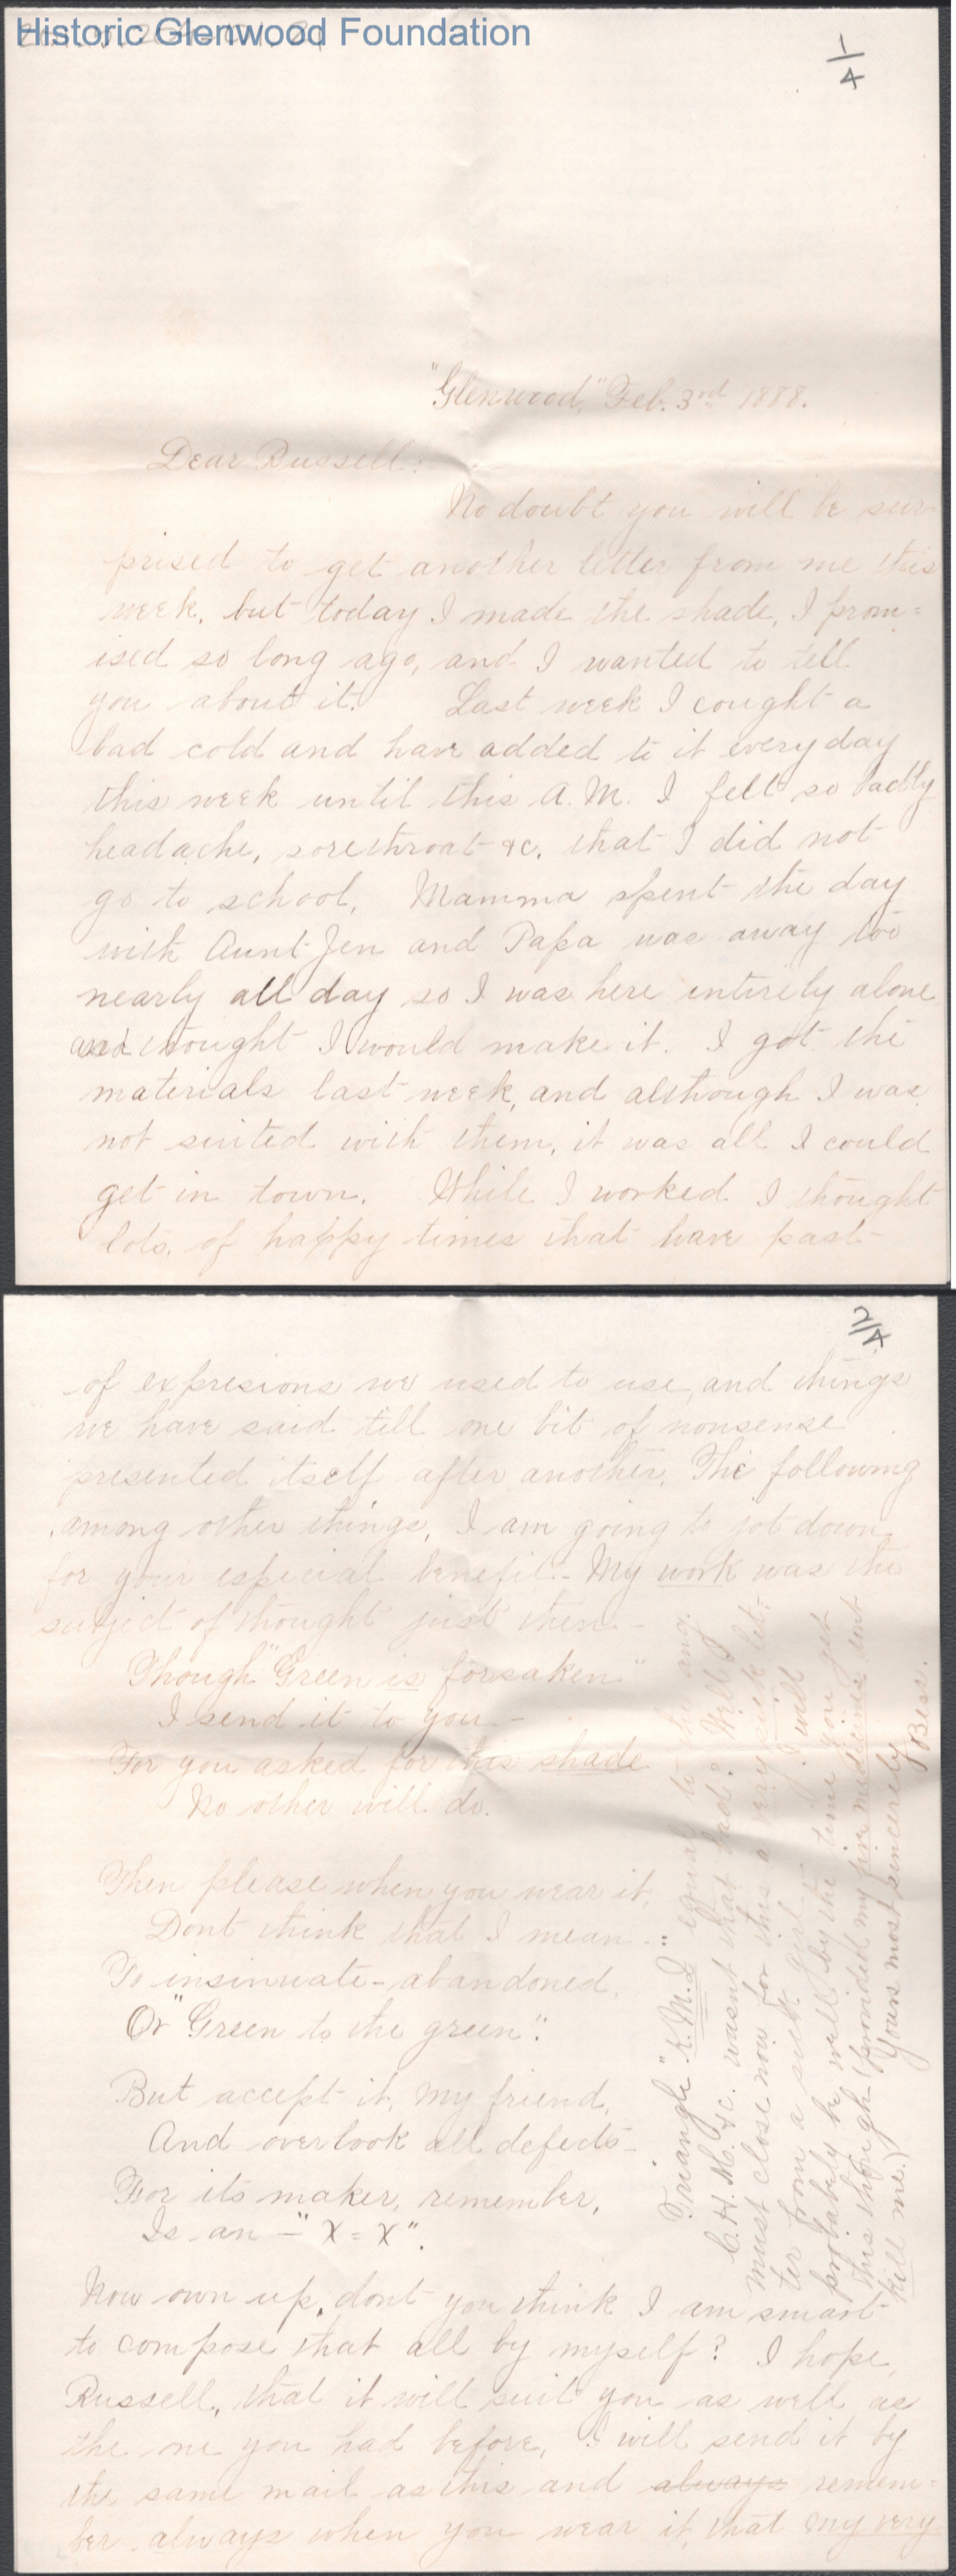 Historic Glenwood Foundation
1/4
"Glenwood," Feb. 3rd 1888.
Dear Russell:
No doubt you will be sur-
prised to get another letter from me this
week, but today I made the shade, I prom=
ised so long ago, and I wanted to tell
you about it. Last week I cought a
bad cold and have added to it everyday
this week until this A.M. I felt so badly
headache, sorethroat &c. that I did not
go to school. Mamma spent the day
with Aunt Jen and Papa was away too
nearly all day so I was here entirely alone
and thought I would make it. I got the
materials last week, and although I was
not suited with them, it was all I could
get in town. While I worked I thought
lots, of happy times that have past-
2/4
of expresions we used to use, and things
we have said till one bit of nonsense
presented itself after another. The following
among other things, I am going to jot down
for your especial benefit.- My work was the
subject of thought just then-
Though "Green is forsaken"
I send it to you-
For you asked for this shade
No other will do.
Then please when you wear it,
Dont think that I mean-
To insinuate-abandoned,
Or "Green to the green".
But accept it, my friend,
And overlook all defects-
For its maker, remember,
Is an - "X = X".
Now own up, dont you think I am smart
to compose that all by myself? I hope,
Russell, that it will suit you as well as
the one you had before, I will send it by
the same mail as this and always remem=
ber always when you wear it, that my very
"Triangle" K.M.I equal to the ang.
C.H.M. &c. wasnt that bad? Well I
must close now for this a very sick let-
ter from a sick girl. I will
probably be well by the time you get
this though (provided my five medicines dont
kill me.) Yours most sincerely
Bess.